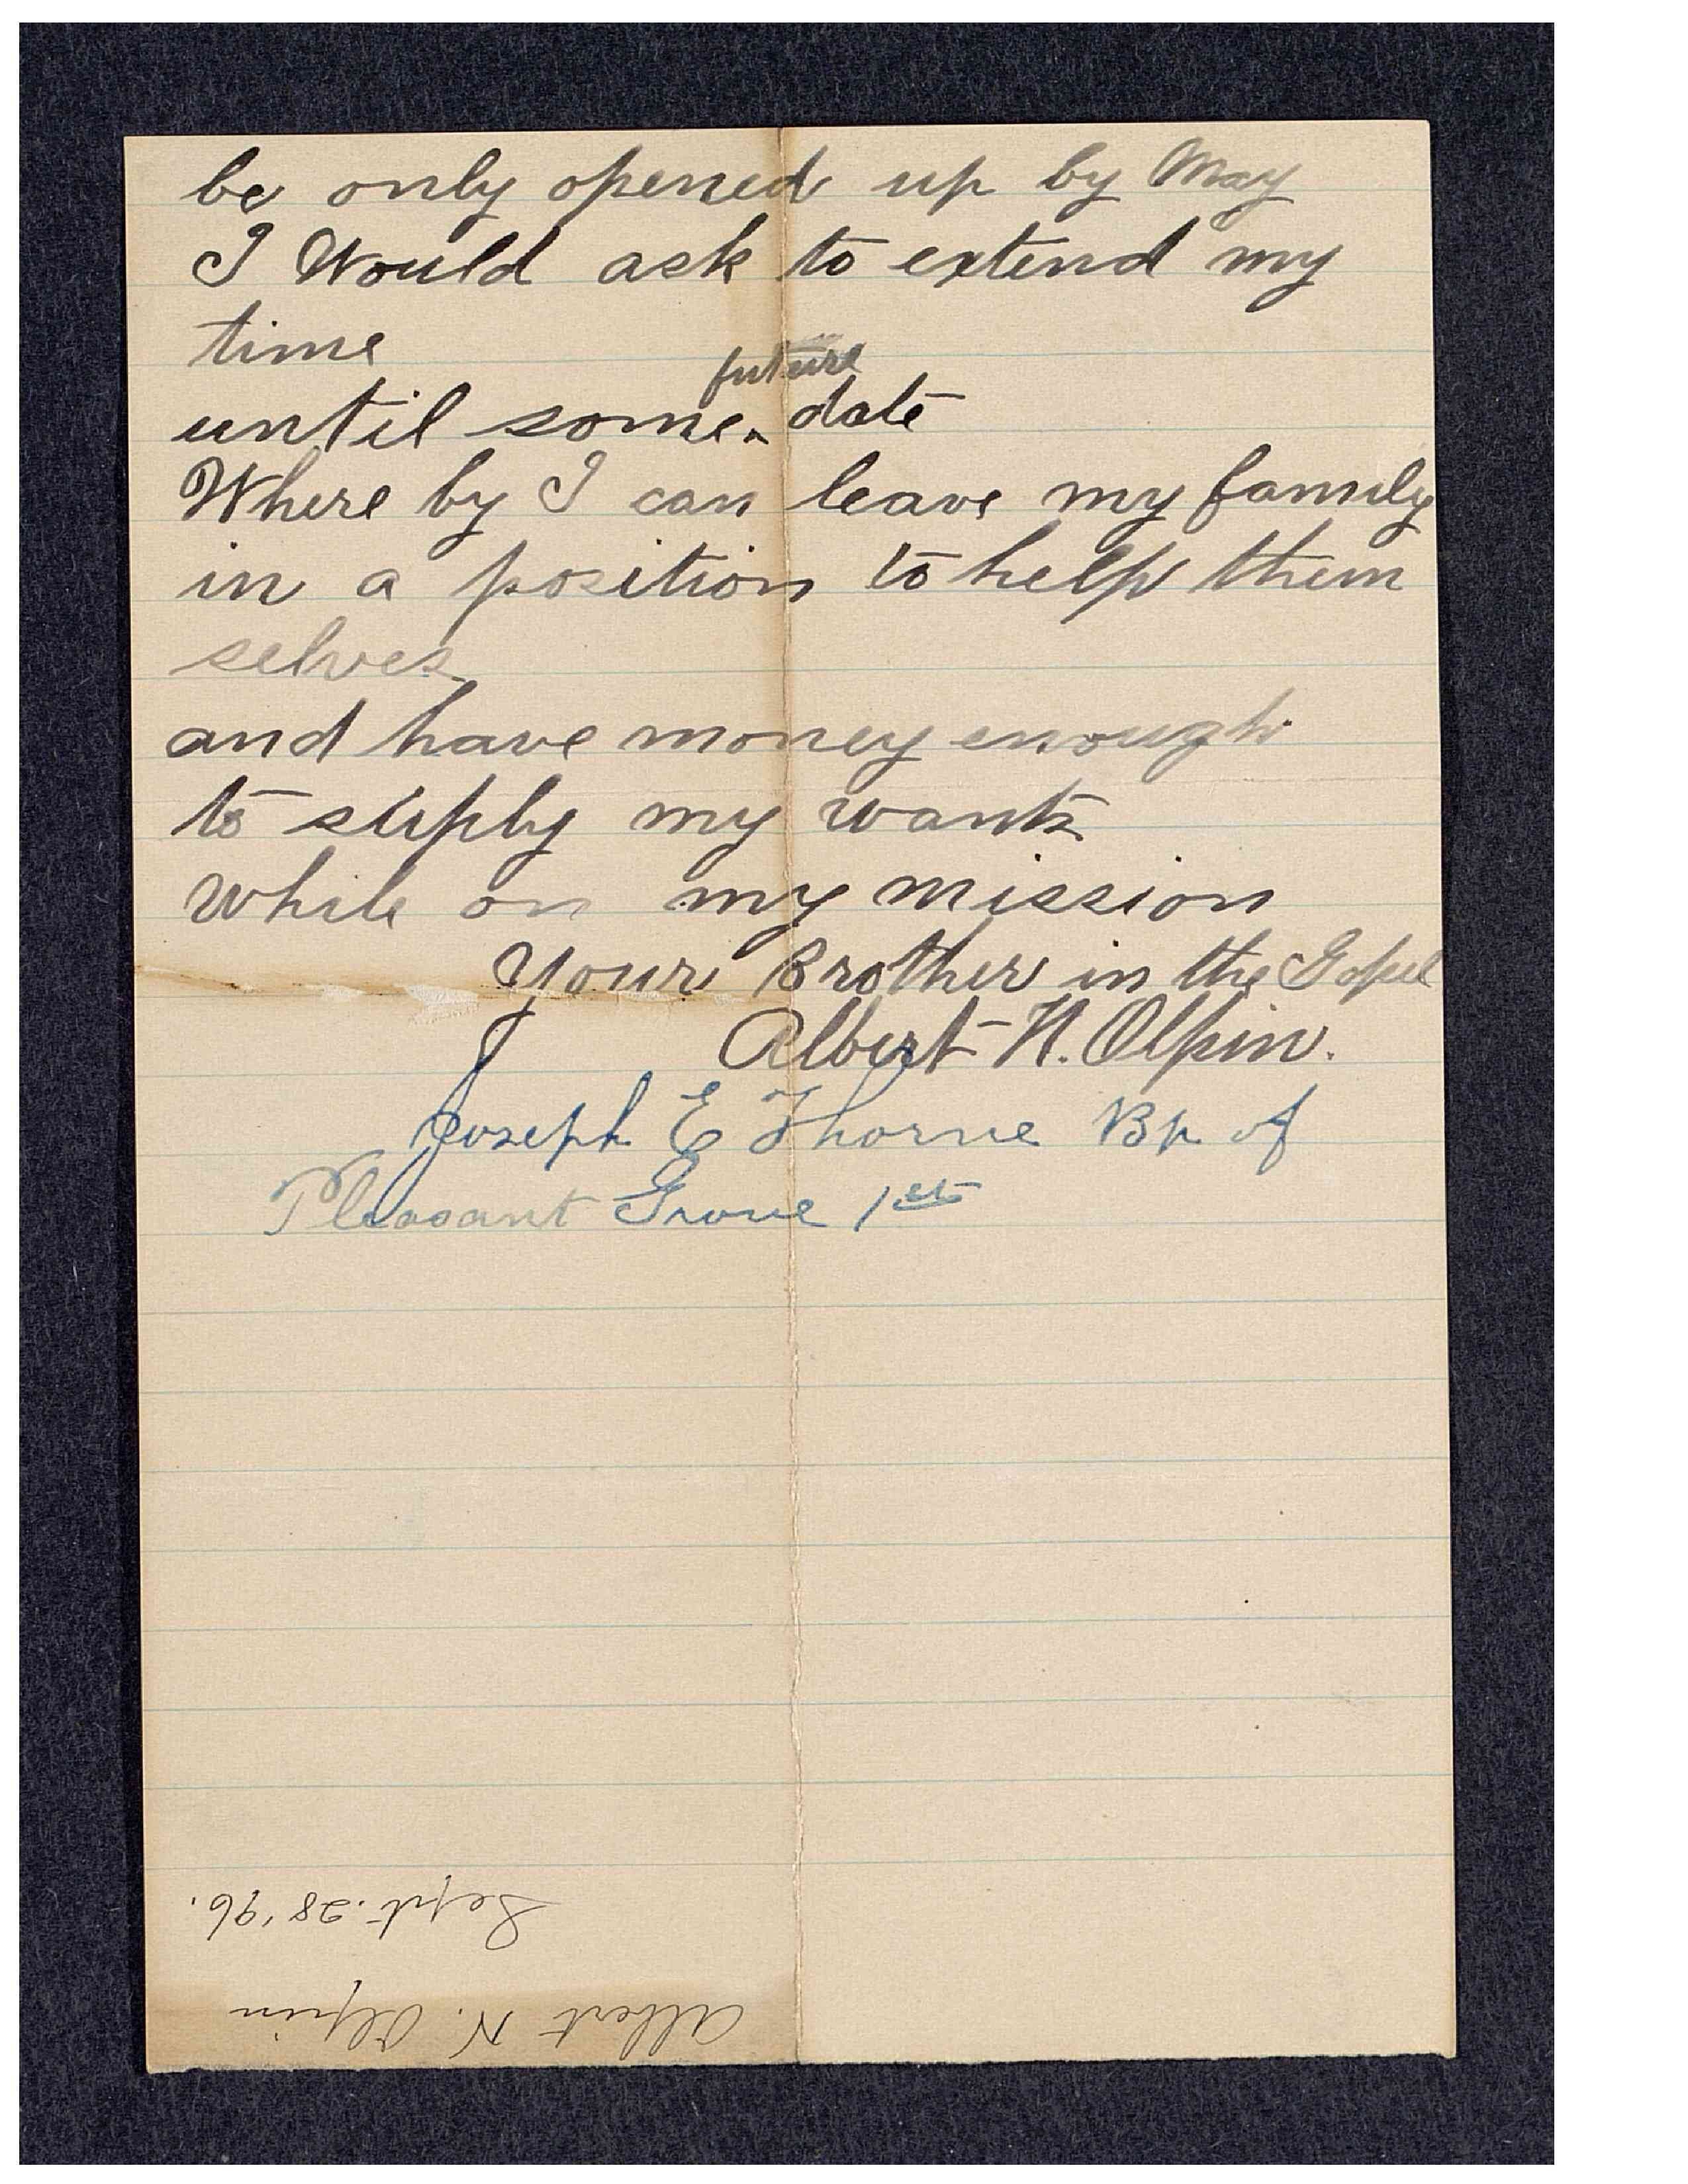 be only opened up by May
I Would ask to extend my
time
future
until some ‸ date
Where by I can leave my family
in a position to help them
selves
and have money enough
to suply my wants
while on my mission
Your Brother in the Gospel
Albert N. Olpin.
Joseph E Thorne Bp of
Pleasant Grove 1st
Albert N. Olpin
Sept. 28 '96.